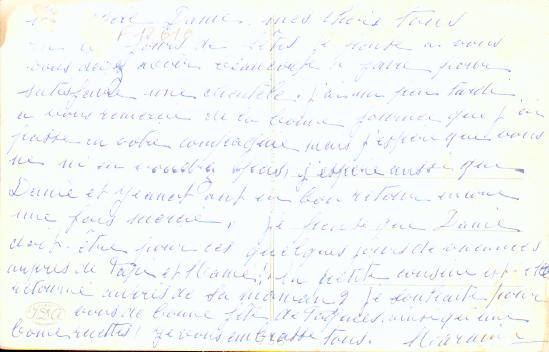 Danie, mes chers tous
jours de fêtes, je pense à vous
vous devez avoir beaucoup à faire pour
satisfaire une clientèle. j'ai un peu tardé
à vous remercier de la bonne journée que j'ai
passé en votre compagnie mais j'espère que vous
ne m'en voudrez pas, j'espère aussi que
Danie et Jeannot ont eu bon retour encore
une fois merci, je pense que Danie
doit-être pour ces quelques jours de vacances
auprès de Papa et Mamie, la petite cousine est-elle
retourné auprès de sa maman? Je souhaite pour
vous de bonne fête de Pâques, ainsi qu'une
bonne je vous embrasse tous.